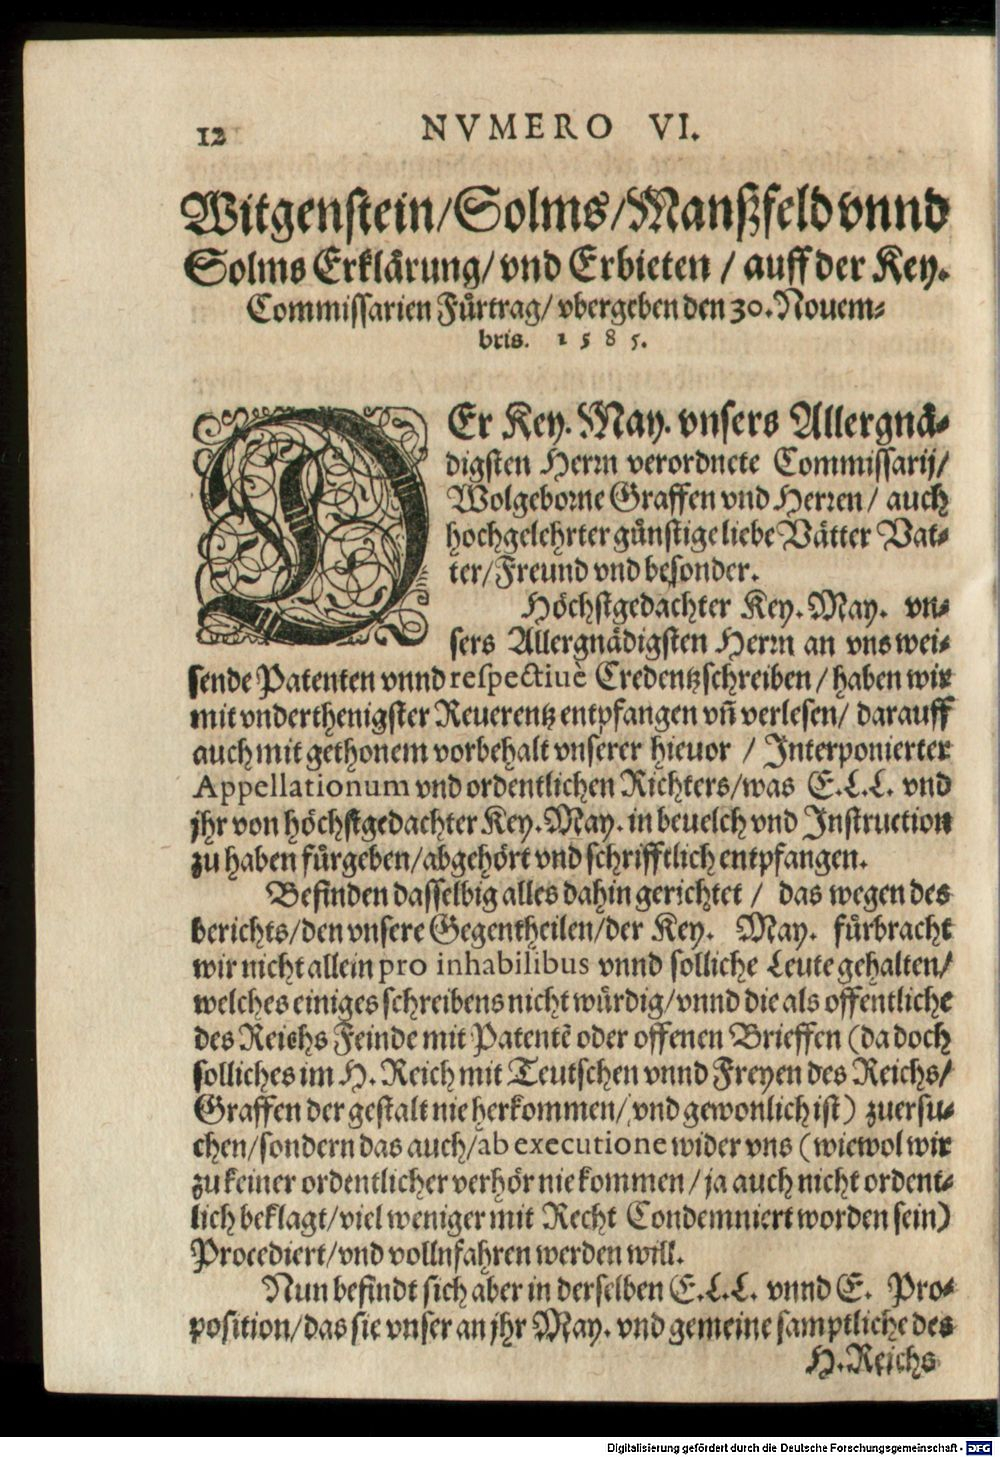 12 NVMERO VI.
Witgenstein/Solms/Manßfeld vnnd
Solms Erklärung/vnd Erbieten / auff der Key.
Commissarien Fürtrag/ vbergeben den 30. Nouem-
bris. 1585.
DEr Key. May. vnsers Allergnä-
digsten Herrn verordnete Commissarij/
Wolgeborne Graffen vnd Herren / auch
hochgelehrter günstige liebe Vätter Vat-
ter/Freund vnd besonder.
Höchstgedachter Key. May. vn-
sers Allergnädigsten Herrn an vns wei-
sende Patenten vnnd respectiuè Credentzschreiben / haben wir
mit vnderthenigster Reuerentz entpfangen vñ verlesen/ darauff
auch mit gethonem vorbehalt vnserer hieuor / Interponierter
Appellationum vnd ordentlichen Richters/was E.L.L. vnd
jhr von höchstgedachter Key. May. in beuelch vnd Instruction
zu haben fürgeben/abgehört vnd schrifftlich entpfangen.
Befinden dasselbig alles dahin gerichtet / das wegen des
berichts/den vnsere Gegentheilen/der Key. May. fürbracht
wir nicht allein pro inhabilibus vnnd solliche Leute gehalten/
welches einiges schreibens nicht würdig/vnnd die als offentliche
des Reichs Feinde mit Patentẽ oder offenen Brieffen (da doch
solliches im H. Reich mit Teutschen vnnd Freyen des Reichs/
Graffen der gestalt nie herkommen/ vnd gewonlich ist) zuersu-
chen/sondern das auch/ab executione wider vns (wiewol wir
zu keiner ordentlicher verhör nie kommen / ja auch nicht ordent-
lich beklagt/viel weniger mit Recht Condemniert worden sein)
Procediert/vnd vollnfahren werden will.
Nun befindt sich aber in derselben E.L.L. vnnd E. Pro-
position/das sie vnser an jhr May. vnd gemeine samptliche des
H. Reichs
Digitalisierung gefördert durch die Deutsche Forschungsgemeinschaft - DFG